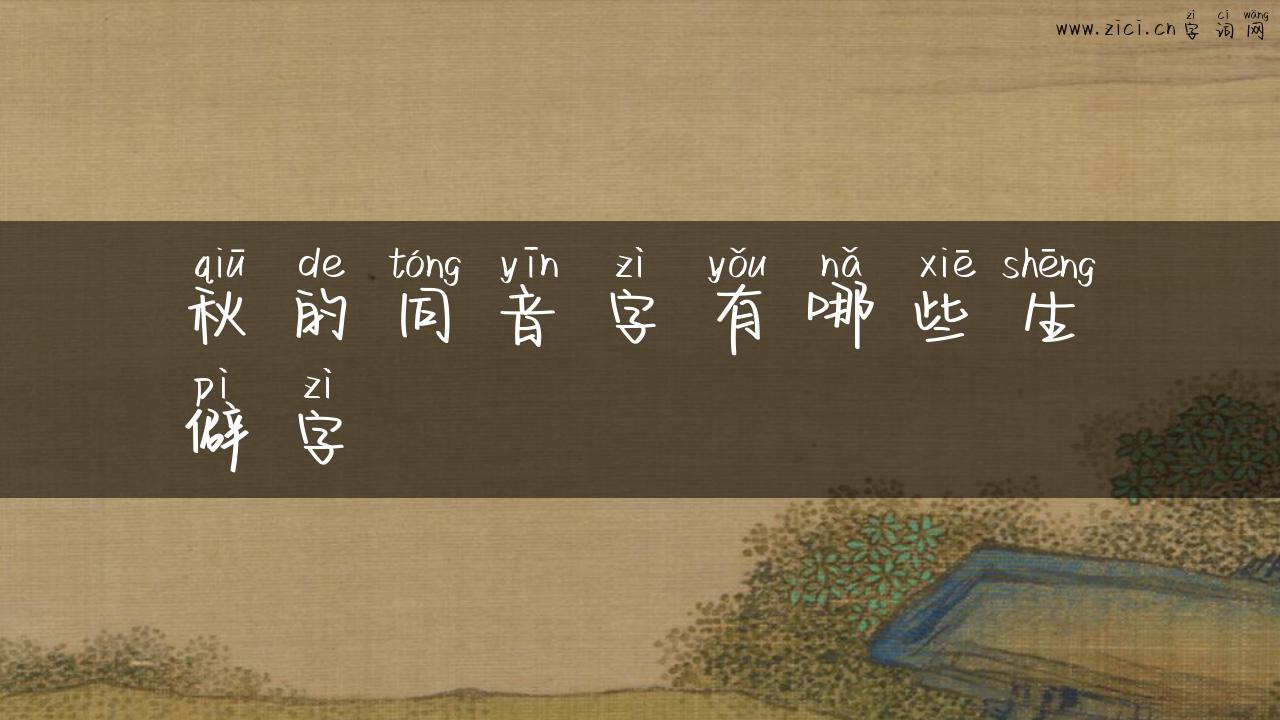 zì cí wǎng
www.zici.cn 字 词 网
qiū de tóng yīn zì yǒu nǎ xiē shēng
秋 的 同 音 字 有 哪 些 生
pì zì
僻 字